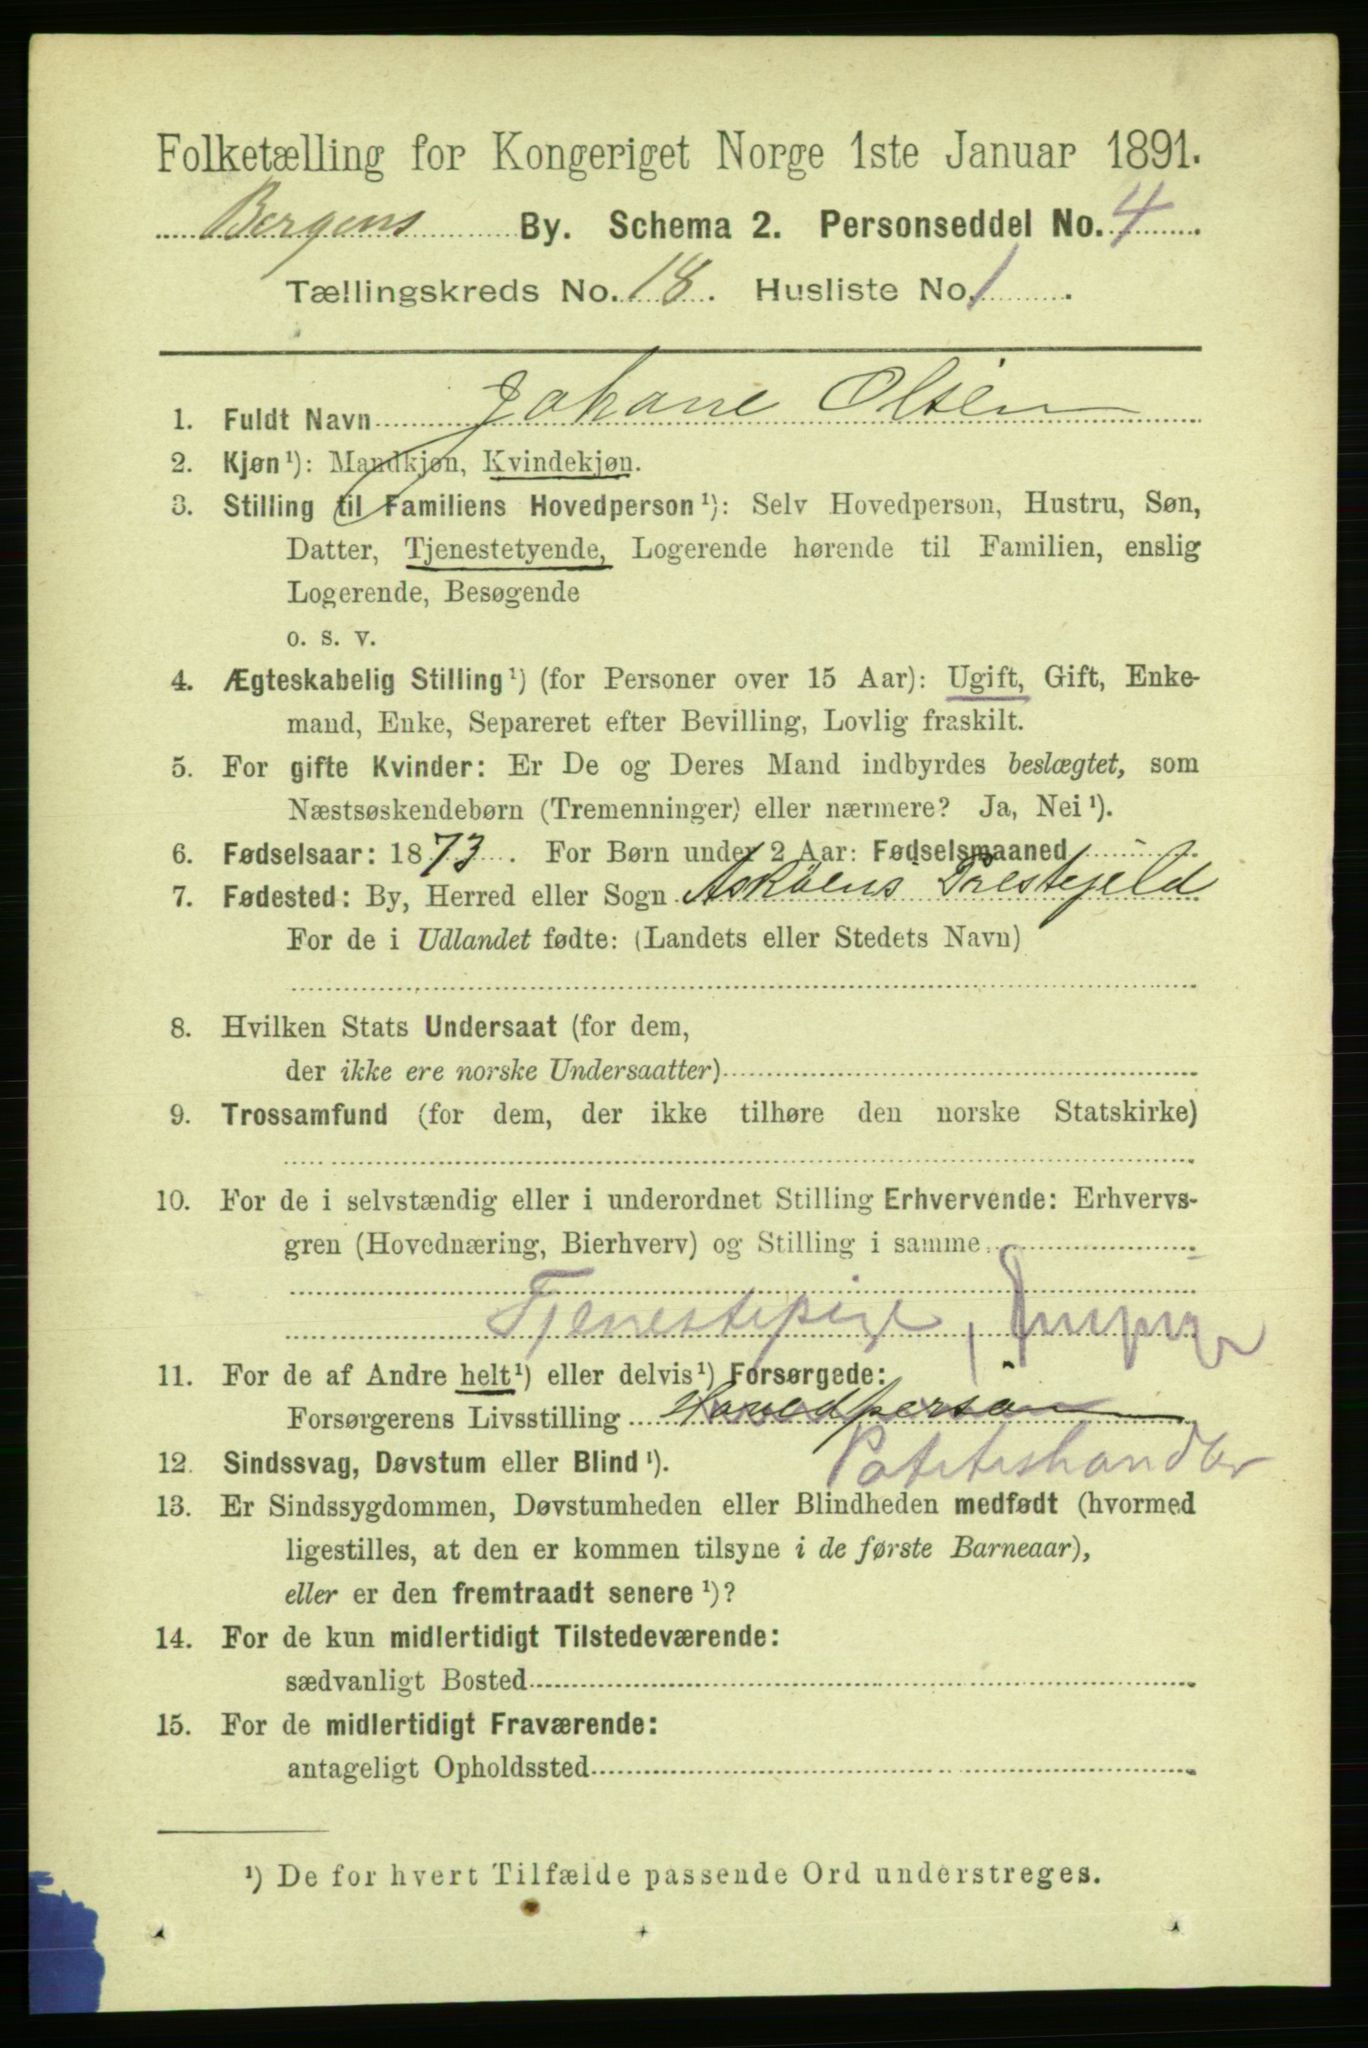 Folketælling for Kongeriget Norge 1ste Januar 1891.
Bergens By. Schema 2. Personseddel No. 4.
Tællingskreds No. 18. Husliste No. 1.
1. Fuldt Navn Johane Olsen
2. Kjøn ¹): Mandkjøn, Kvindekjøn.
3. Stilling til Familiens Hovedperson ¹): Selv Hovedperson, Hustru, Søn,
Datter, Tjenestetyende, Logerende hørende til Familien, enslig
Logerende, Besøgende
o. s. v.
4. Ægteskabelig Stilling ¹) (for Personer over 15 Aar): Ugift, Gift, Enke-
mand, Enke, Separeret efter Bevilling, Lovlig fraskilt.
5. For gifte Kvinder: Er De og Deres Mand indbyrdes beslægtet, som
Næstsøskendebørn (Tremenninger) eller nærmere? Ja, Nei ¹).
6. Fødselsaar: 1873. For Børn under 2 Aar: Fødselsmaaned
7. Fødested: By, Herred eller Sogn Askøens Prestejeld
For de i Udlandet fødte: (Landets eller Stedets Navn)
8. Hvilken Stats Undersaat (for dem,
der ikke ere norske Undersaatter)
9. Trossamfund (for dem, der ikke tilhøre den norske Statskirke)
10. For de i selvstændig eller i underordnet Stilling Erhvervende: Erhvervs-
gren (Hovednæring, Bierhverv) og Stilling i samme
Tjenestepige,
11. For de af Andre helt ¹) eller delvis ¹) Forsørgede:
Forsørgerens Livsstilling Hovedperson
12. Sindssvag, Døvstum eller Blind ¹). Potetishandler
13. Er Sindssygdommen, Døvstumheden eller Blindheden medfødt (hvormed
ligestilles, at den er kommen tilsyne i de første Barneaar),
eller er den fremtraadt senere ¹)?
14. For de kun midlertidigt Tilstedeværende:
sædvanligt Bosted
15. For de midlertidigt Fraværende:
antageligt Opholdssted
¹) De for hvert Tilfælde passende Ord understreges.